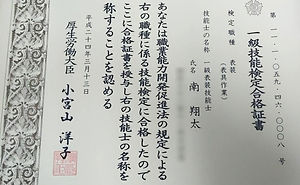 一級技能検定合格証書
第一一-一-〇五九-四六-〇〇〇八号
検定職種 表装
(表具作業)
技能士の名称 一級表装技能士
氏名 南 翔太
あなたは職業能力開発促進法の規定による
右の職種に係る技能検定に合格したので
ここに合格証書を授与し右の技能士の名称を
称することを認める
平成二十四年三月十三日
厚生労働大臣 小宮山 洋子